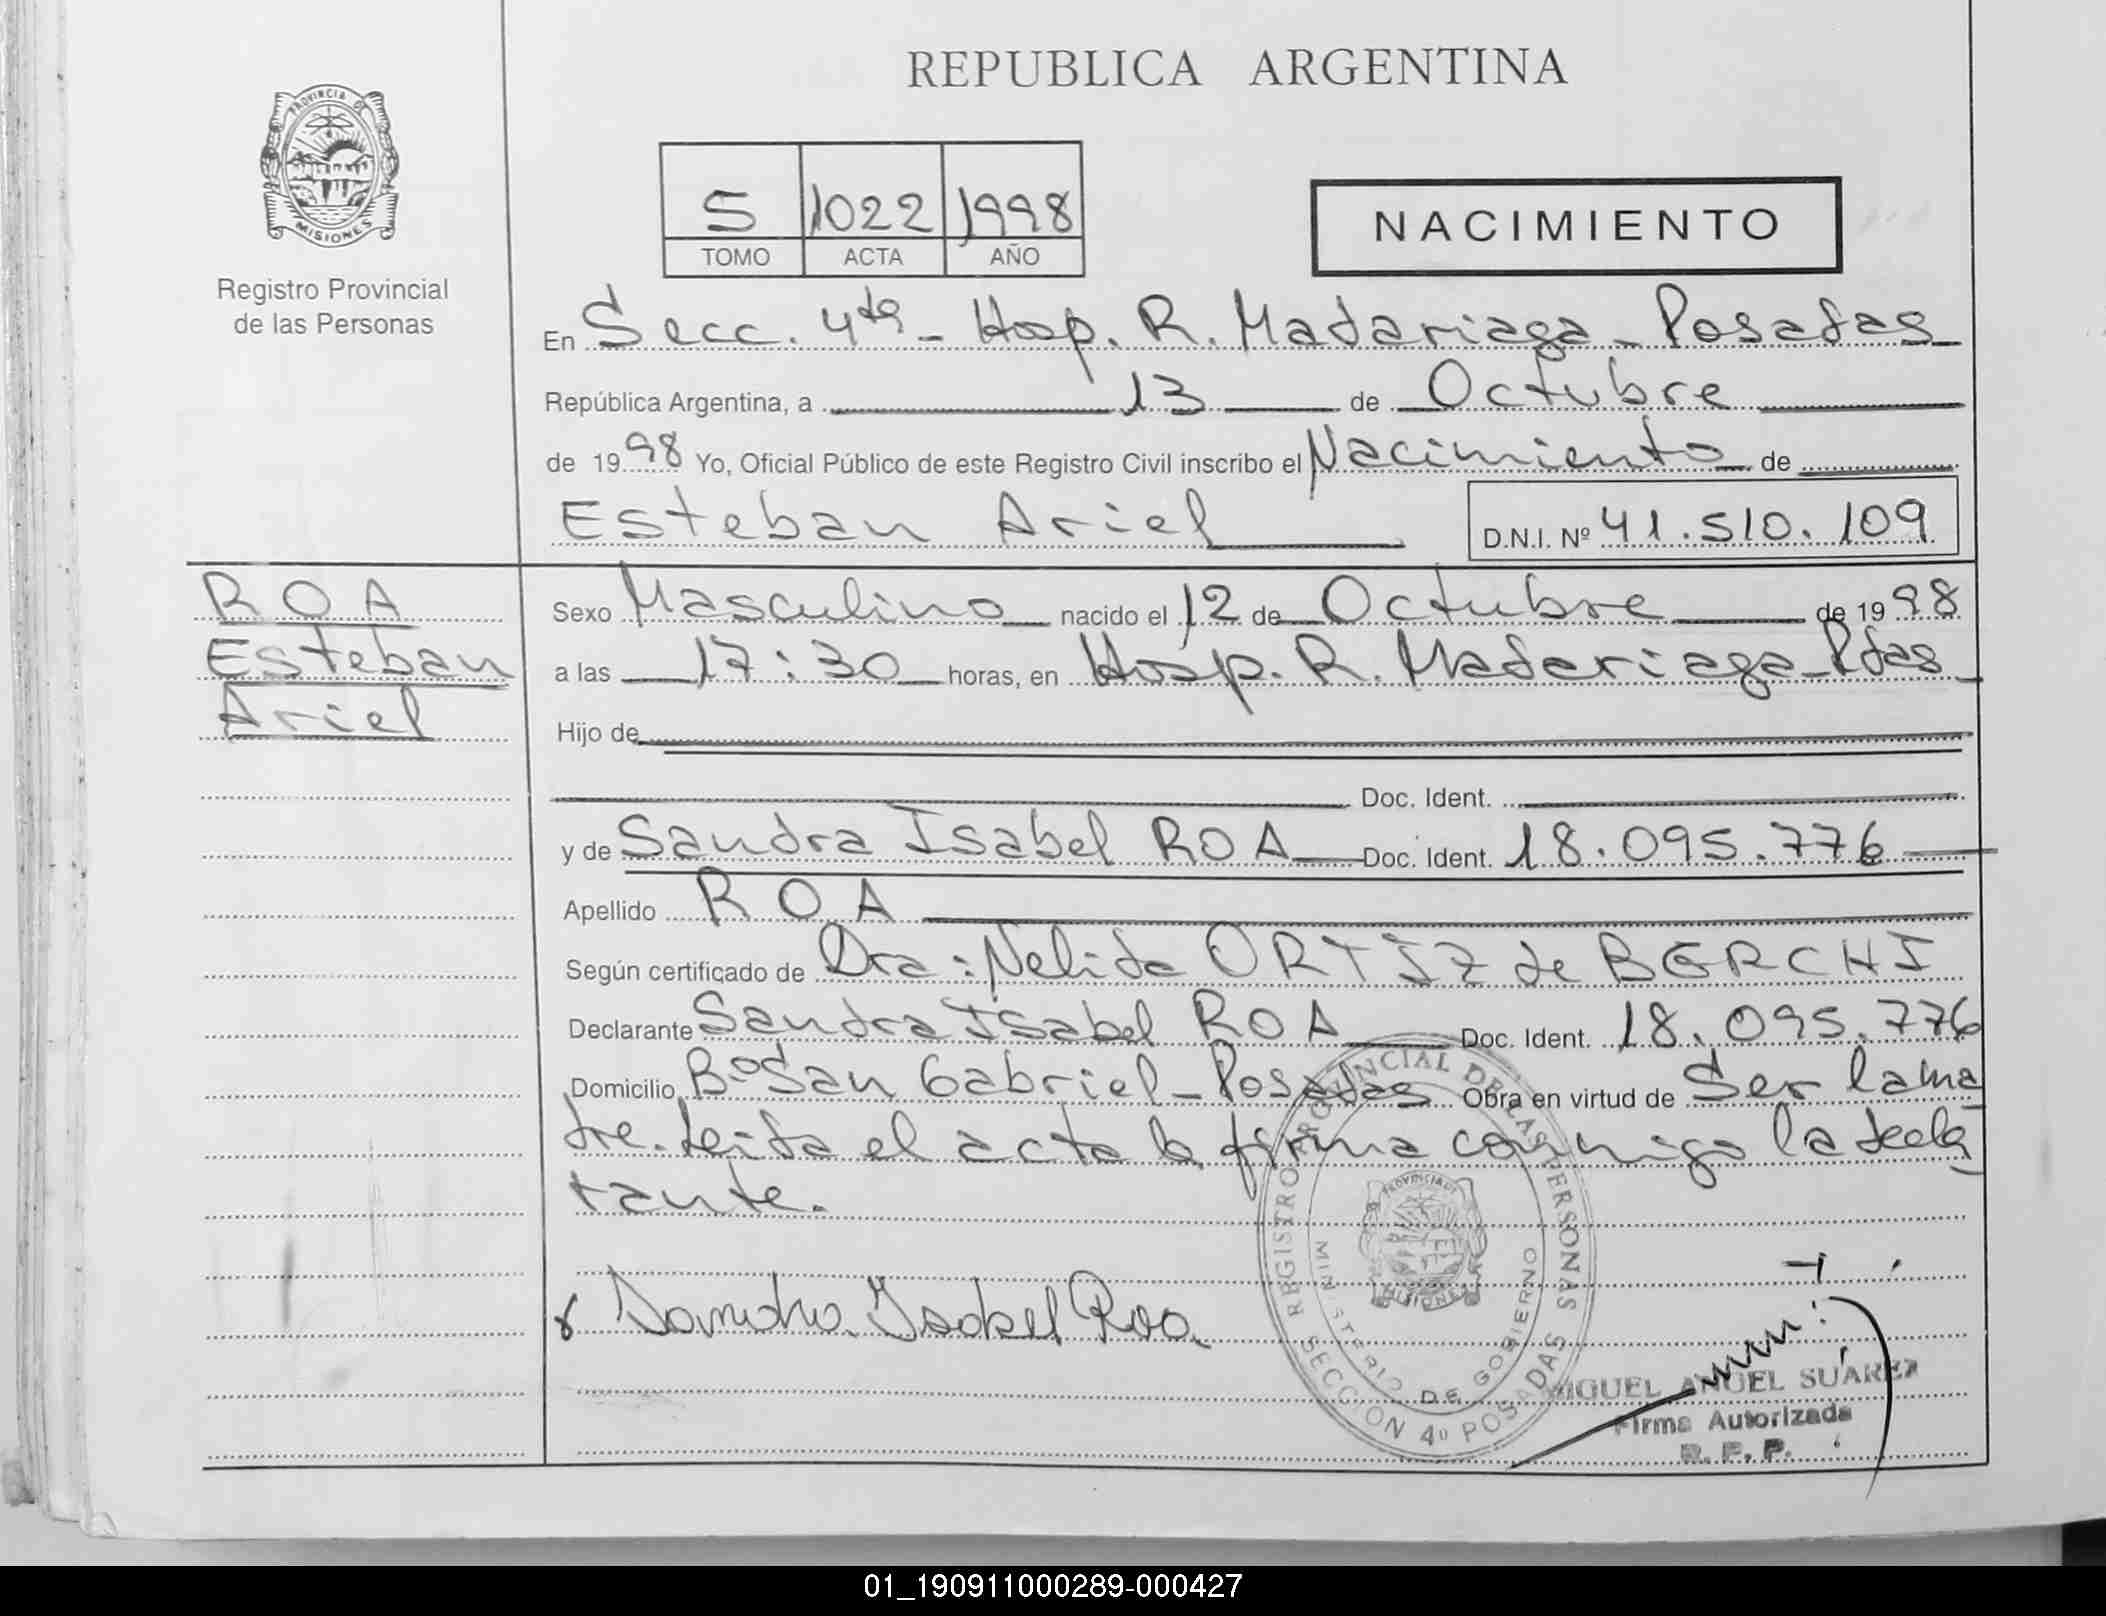 REPUBLICA ARGENTINA
PROVINCIA DE
MISIONES
Registro Provincial
de las Personas
5 1022 1998
TOMO ACTA AÑO
NACIMIENTO
En Secc. 4ta - Hosp. R. Madariaga - Posadas
República Argentina, a 13 de Octubre
de 1998 Yo, Oficial Público de este Registro Civil inscribo el Nacimiento de
Esteban Ariel D.N.I. Nº 41.510.109
ROA
Esteban
Ariel
Sexo Masculino nacido el 12 de Octubre de 1998
a las 17:30 horas, en Hosp. R. Madariaga - Pdas
Hijo de
Doc. Ident.
y de Sandra Isabel ROA Doc. Ident. 18.095.776
Apellido ROA
Según certificado de Dra: Nelida ORTIZ de BERCHI
Declarante Sandra Isabel ROA Doc. Ident. 18.095.776
Domicilio Bº San Gabriel - Posadas Obra en virtud de Ser la ma
dre. Leida el acta la firma conmigo la decla
rante.
Sandra Isabel Roa
REGISTRO PROVINCIAL DE LAS PERSONAS
MINISTERIO DE GOBIERNO
SECCION 4º POSADAS
PROVINCIA DE
MISIONES
MIGUEL ANGEL SUAREZ
Firma Autorizada
R. P. P.
01_190911000289-000427